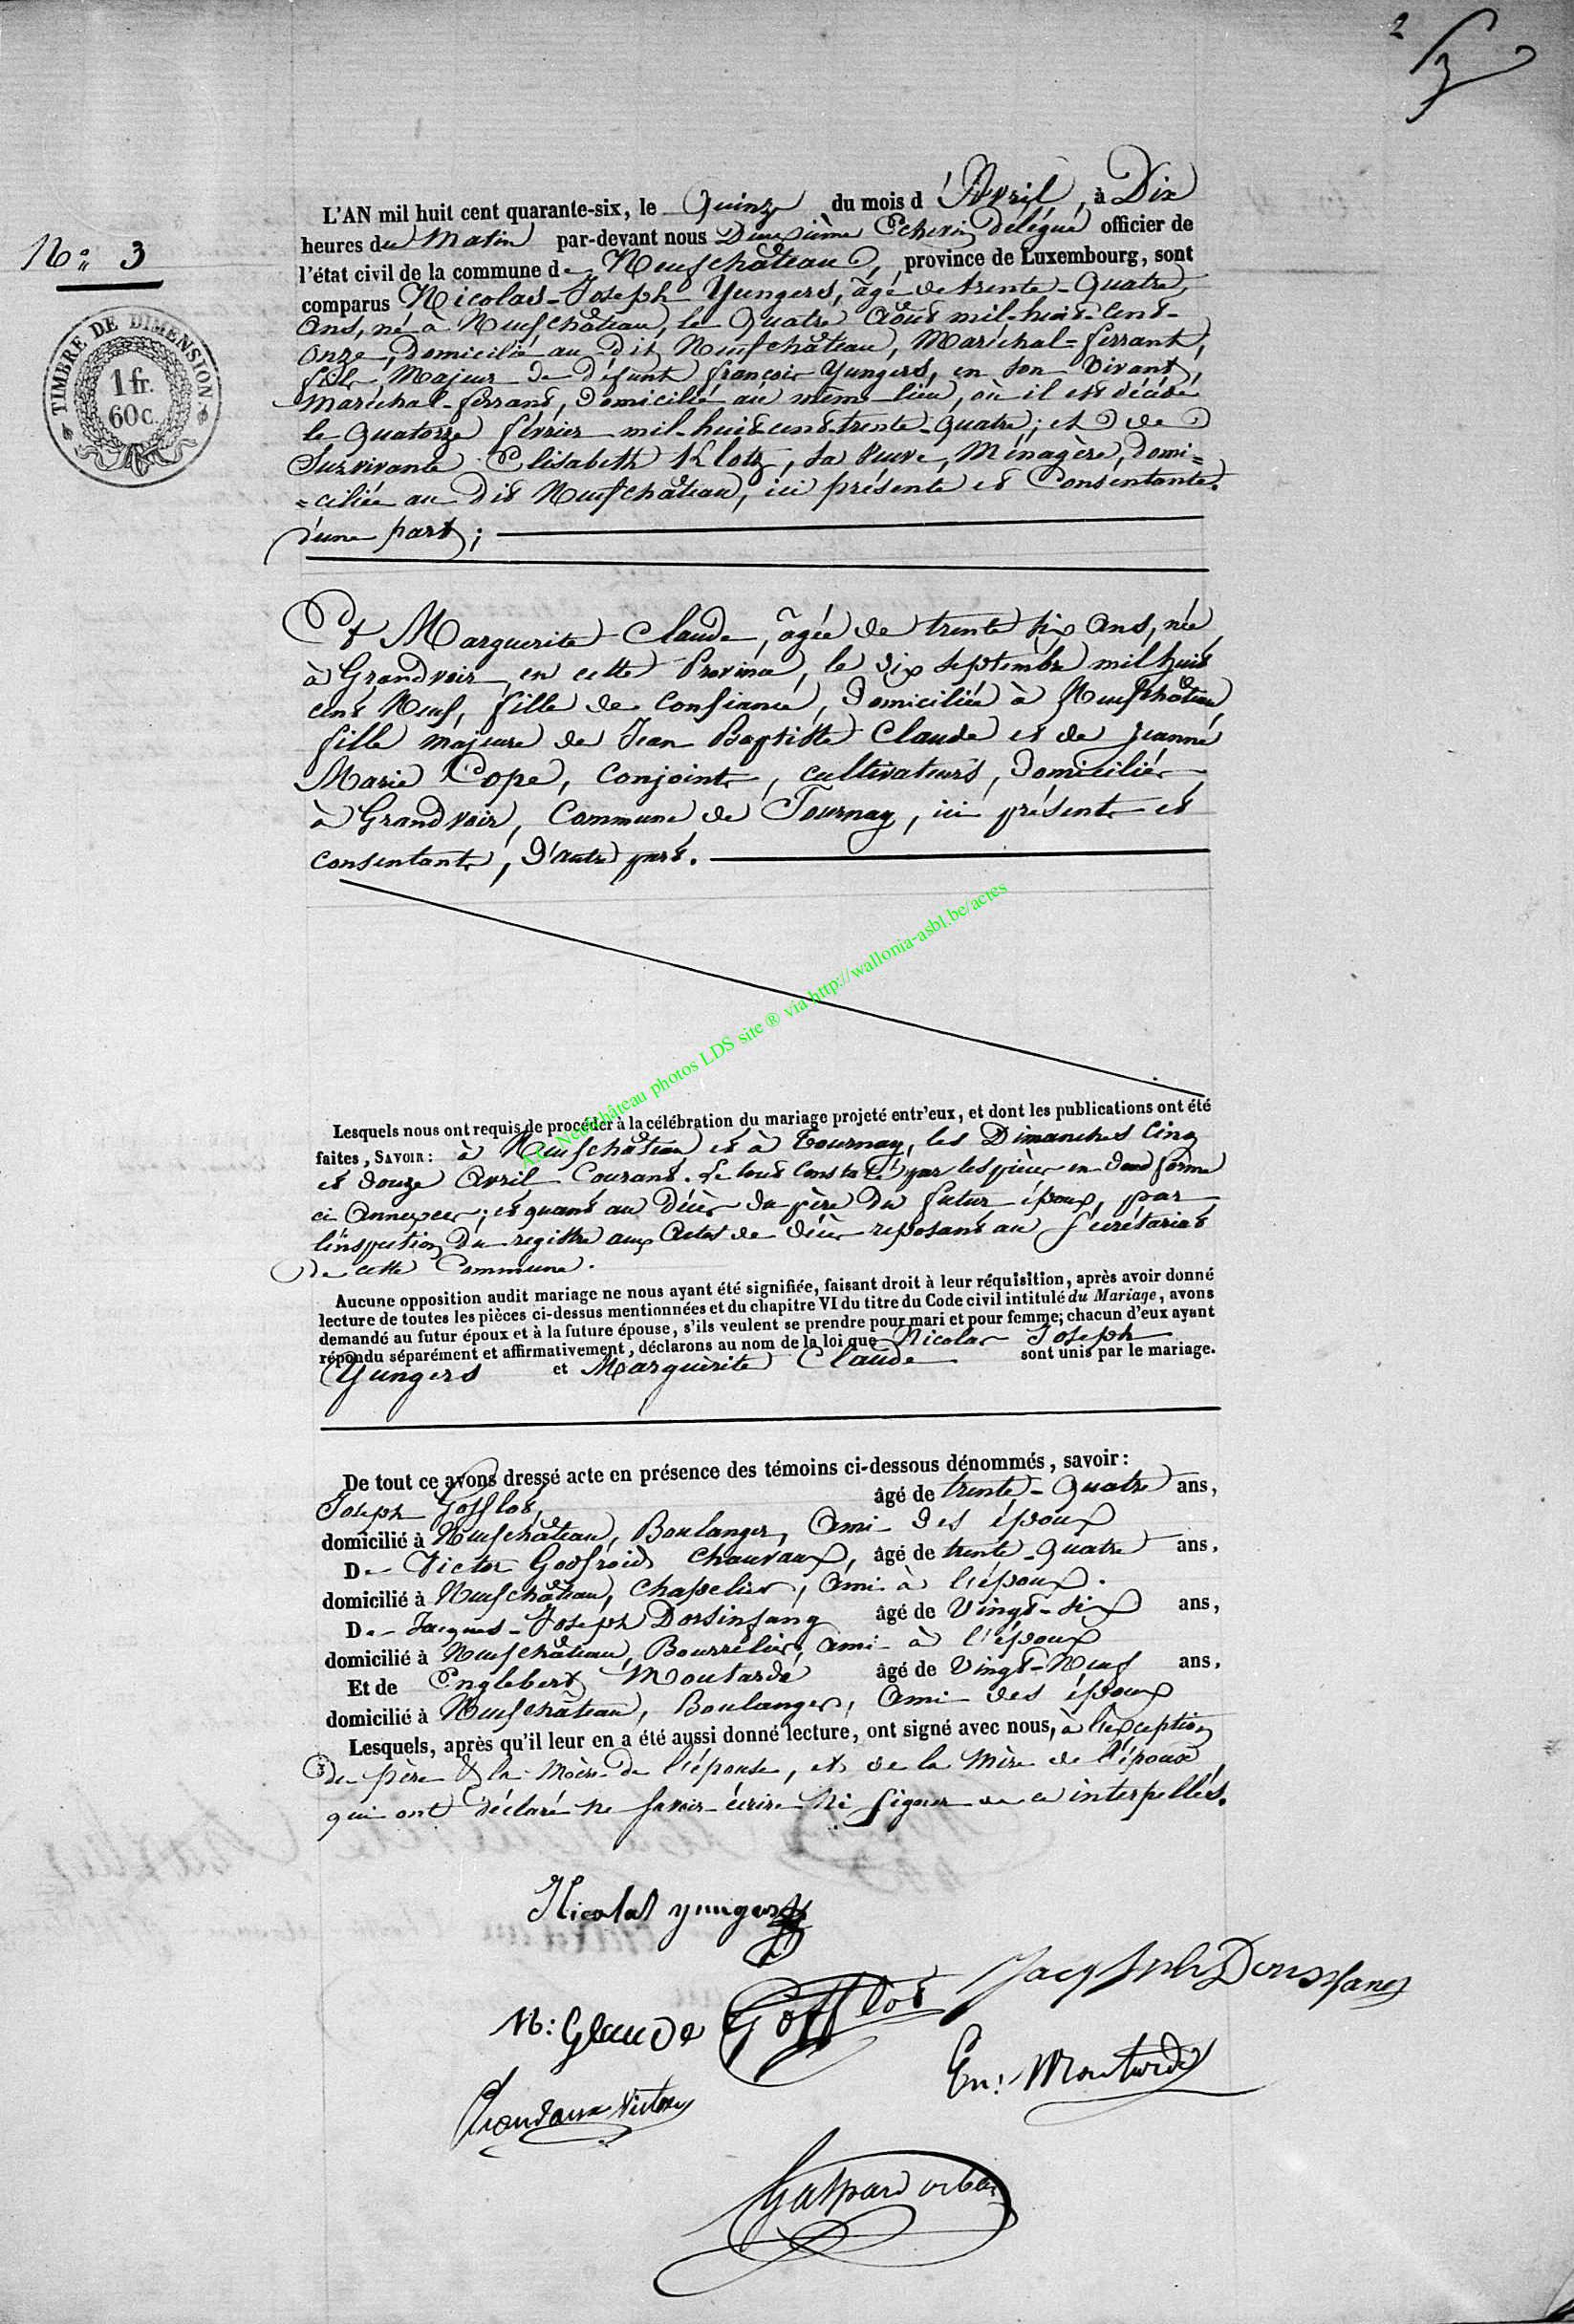 2
3
N° 3
TIMBRE DE DIMENSION
1 fr.
60 c.
L'AN mil huit cent quarante-six, le Quinze du mois d'Avril, à Dix
heures du Matin par-devant nous Deuxième Echevin délégué officier de
l'état civil de la commune de Neufchâteau, province de Luxembourg, sont
comparus Nicolas-Joseph Yungers, âgé de trente-Quatre
Ans, né à Neufchâteau, le Quatre Août mil-huit-Cent-
Onze, domicilié au dit Neufchâteau, Maréchal=ferrant,
fils Majeur de défunt françois Yungers, en son Vivant,
Maréchal-ferrant, domicilié au même lieu, où il est décédé
le Quatorze février mil-huit-cent-trente-Quatre; et de
Survivante Elisabeth Klotz, sa Veuve, Ménagère, domi=
=ciliée au dit Neufchâteau, ici présente et Consentante.
d'une part;
Et Marguerite Claude, âgée de trente six Ans, née
à Grandvoir, en cette Province, le dix septembre mil huit
cent Neuf, fille de Confiance, domiciliée à Neufchâteau,
fille majeure de Jean Baptiste Claude et de Jeanne
Marie Cope, Conjoints, cultivateurs, domiciliés
à Grandvoir, Commune de Tournay, ici présents et
consentants, d'autre part.
A.C. Neufchâteau photos LDS site ® via http://wallonia-asbl.be/actes
Lesquels nous ont requis de procéder à la célébration du mariage projeté entr'eux, et dont les publications ont été
faites, SAVOIR: à Neufchâteau et à Tournay, les Dimanches Cinq
et douze Avril Courant. Le tout Constaté par les pièces en due forme
ci Annexées; et quant au Décès du père du futur époux, par
l'inspection du registre aux Actes de décès reposant au Sécrétariat
de cette Commune.
Aucune opposition audit mariage ne nous ayant été signifiée, faisant droit à leur réquisition, après avoir donné
lecture de toutes les pièces ci-dessus mentionnées et du chapitre VI du titre du Code civil intitulé du Mariage, avons
demandé au futur époux et à la future épouse, s'ils veulent se prendre pour mari et pour femme; chacun d'eux ayant
répondu séparément et affirmativement, déclarons au nom de la loi que Nicolas Joseph
Yungers et Marguerite Claude sont unis par le mariage.
De tout ce avons dressé acte en présence des témoins ci-dessous dénommés, savoir:
Joseph Gofflot, âgé de trente-Quatre ans,
domicilié à Neufchâteau, Boulanger, Ami des époux
De Victor Godfroid Chauvaux, âgé de trente-Quatre ans,
domicilié à Neufchâteau, Chapelier, Ami à l'époux.
De Jacques-Joseph Dorsinfang âgé de Vingt-Six ans,
domicilié à Neufchâteau, Bourrelier, Ami à l'époux
Et de Englebert Moutarde âgé de Vingt-Neuf ans,
domicilié à Neufchâteau, Boulanger, Ami des époux
Lesquels, après qu'il leur en a été aussi donné lecture, ont signé avec nous, à l'exception
du père & la Mère de l'épouse, et de la Mère de l'époux
qui ont déclaré ne savoir écrire Ni signer de ce interpellés.
Nicolas yungers
Jacq Jph Dorsinfang
M: Glaude Gofflot
En: Moutarde
Chauvaux Victor
Gaspard